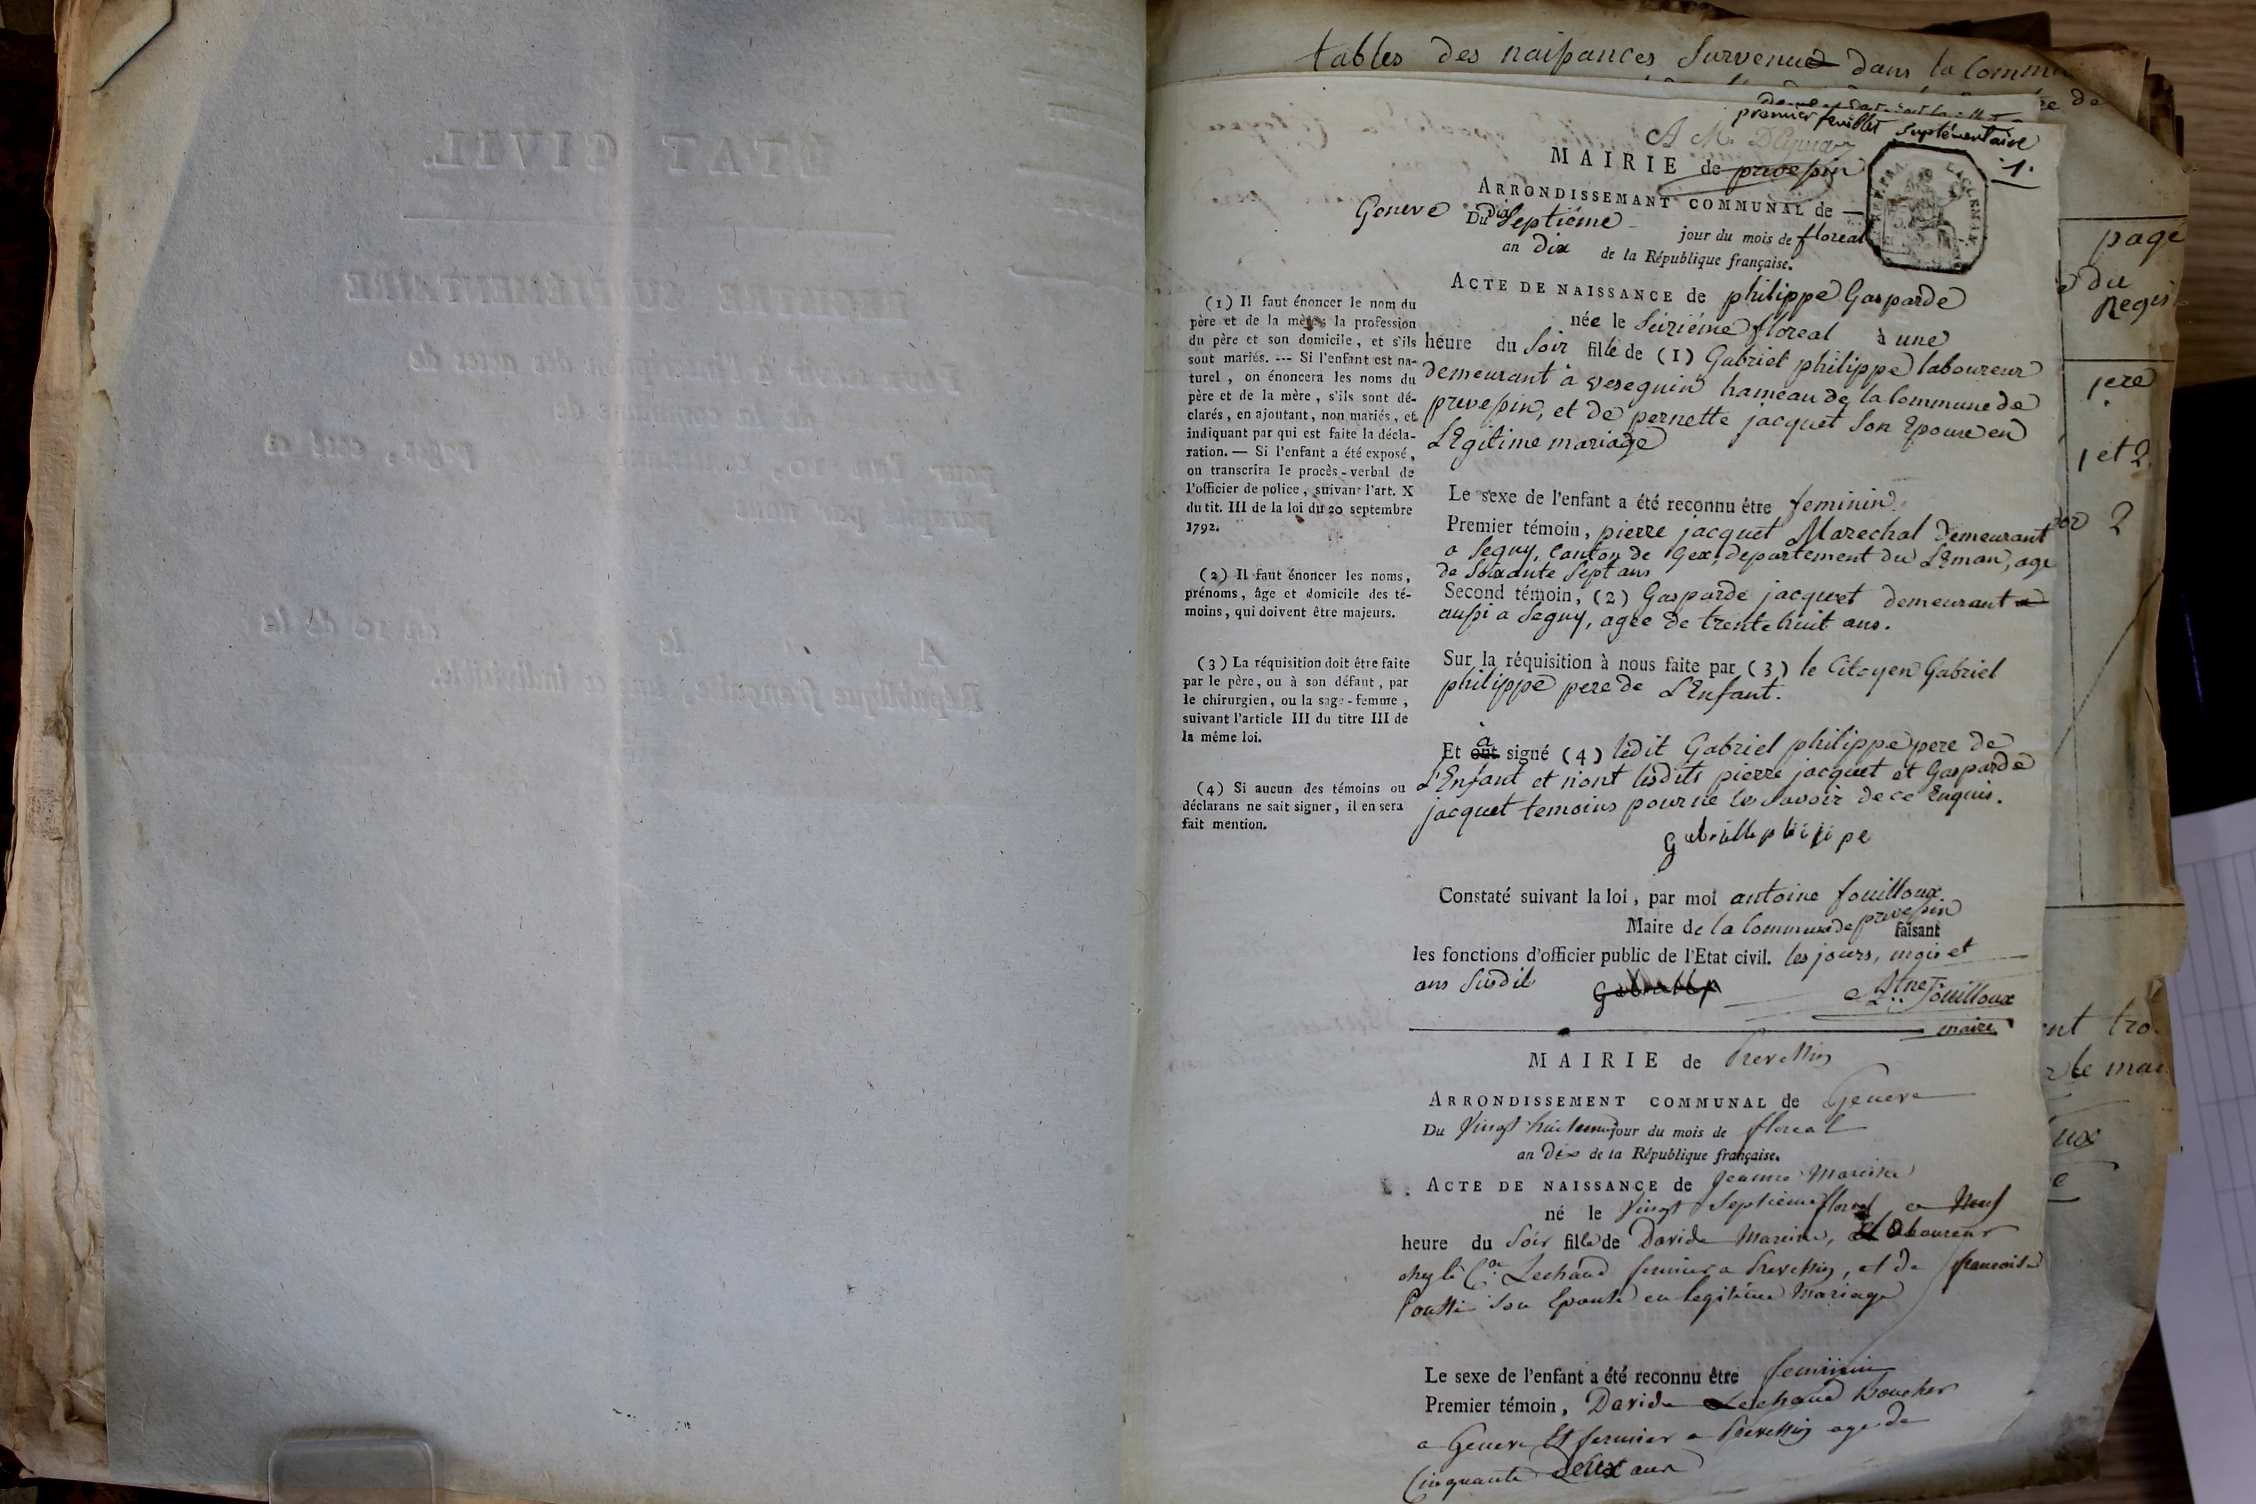 tables des naissances Survenue dans la Commu
premier feuillet suplémentaire
1.
MAIRIE de prevessin
ARRONDISSEMANT COMMUNAL de —
Geneve
Du dix Septiéme jour du mois de floreal
an dix de la République française.
ACTE DE NAISSANCE de philippe Gasparde
née le Seiziéme floreal à une
heure du Soir fille de (1) Gabriel philippe laboureur
demeurant à veseguin hameau de la Commune de
prevessin, et de pernette jacquet Son Epouse en
LEgitime mariage
Le sexe de l'enfant a été reconnu être feminin.
Premier témoin, pierre jacquet Marechal demeurant
a Seguy, Canton de Gex, departement du LEman, age
de Soixante Sept ans
Second témoin, (2) Gasparde jacquet demeurant a
aussi a Seguy, agée de trente huit ans.
Sur la réquisition à nous faite par (3) le Citoyen Gabriel
philippe pere de LEnfant.
Et ont a signé (4) ledit Gabriel philippe pere de
L'Enfant et n'ont lesdits pierre jacquet et Gasparde
jacquet temoins pour ne le Savoir de ce Enquis.
Constaté suivant la loi, par moi antoine fouilloux
Maire de la Commune de prevessin faisant
les fonctions d'officier public de l'Etat civil. les jours, mois et
ans Susdit
Atne Fouilloux
maire
(1) Il faut énoncer le nom du
père et de la mère, la profession
du père et son domicile, et s'ils
sont mariés. --- Si l'enfant est na-
turel, on énoncera les noms du
père et de la mère, s'ils sont dé-
clarés, en ajoutant, non mariés, et
indiquant par qui est faite la décla-
ration. — Si l'enfant a été exposé,
on transcrira le procès-verbal de
l'officier de police, suivant l'art. X
du tit. III de la loi du 20 septembre
1792.
(2) Il faut énoncer les noms,
prénoms, âge et domicile des té-
moins, qui doivent être majeurs.
(3) La réquisition doit être faite
par le père, ou à son défaut, par
le chirurgien, ou la sage-femme,
suivant l'article III du titre III de
la même loi.
(4) Si aucun des témoins ou
déclarans ne sait signer, il en sera
fait mention.
MAIRIE de Prevessin
ARRONDISSEMENT COMMUNAL de Geneve
Du Vingt huitieme jour du mois de floreal
an Dix de la République française.
ACTE DE NAISSANCE de Jeanne
né le Vingt Septieme floreal a Neuf
heure du Soir fille de Davide
chez le Lechaud fermier a Prevessin, et de francoise
son Epouse en legitime Mariage
Le sexe de l'enfant a été reconnu être feminin
Premier témoin, Davide Lechaud Boucher
a Geneve Et fermier a Prevessin age de
Cinquante Deux ans
page
du
Regis
1ere
1 et 2
2